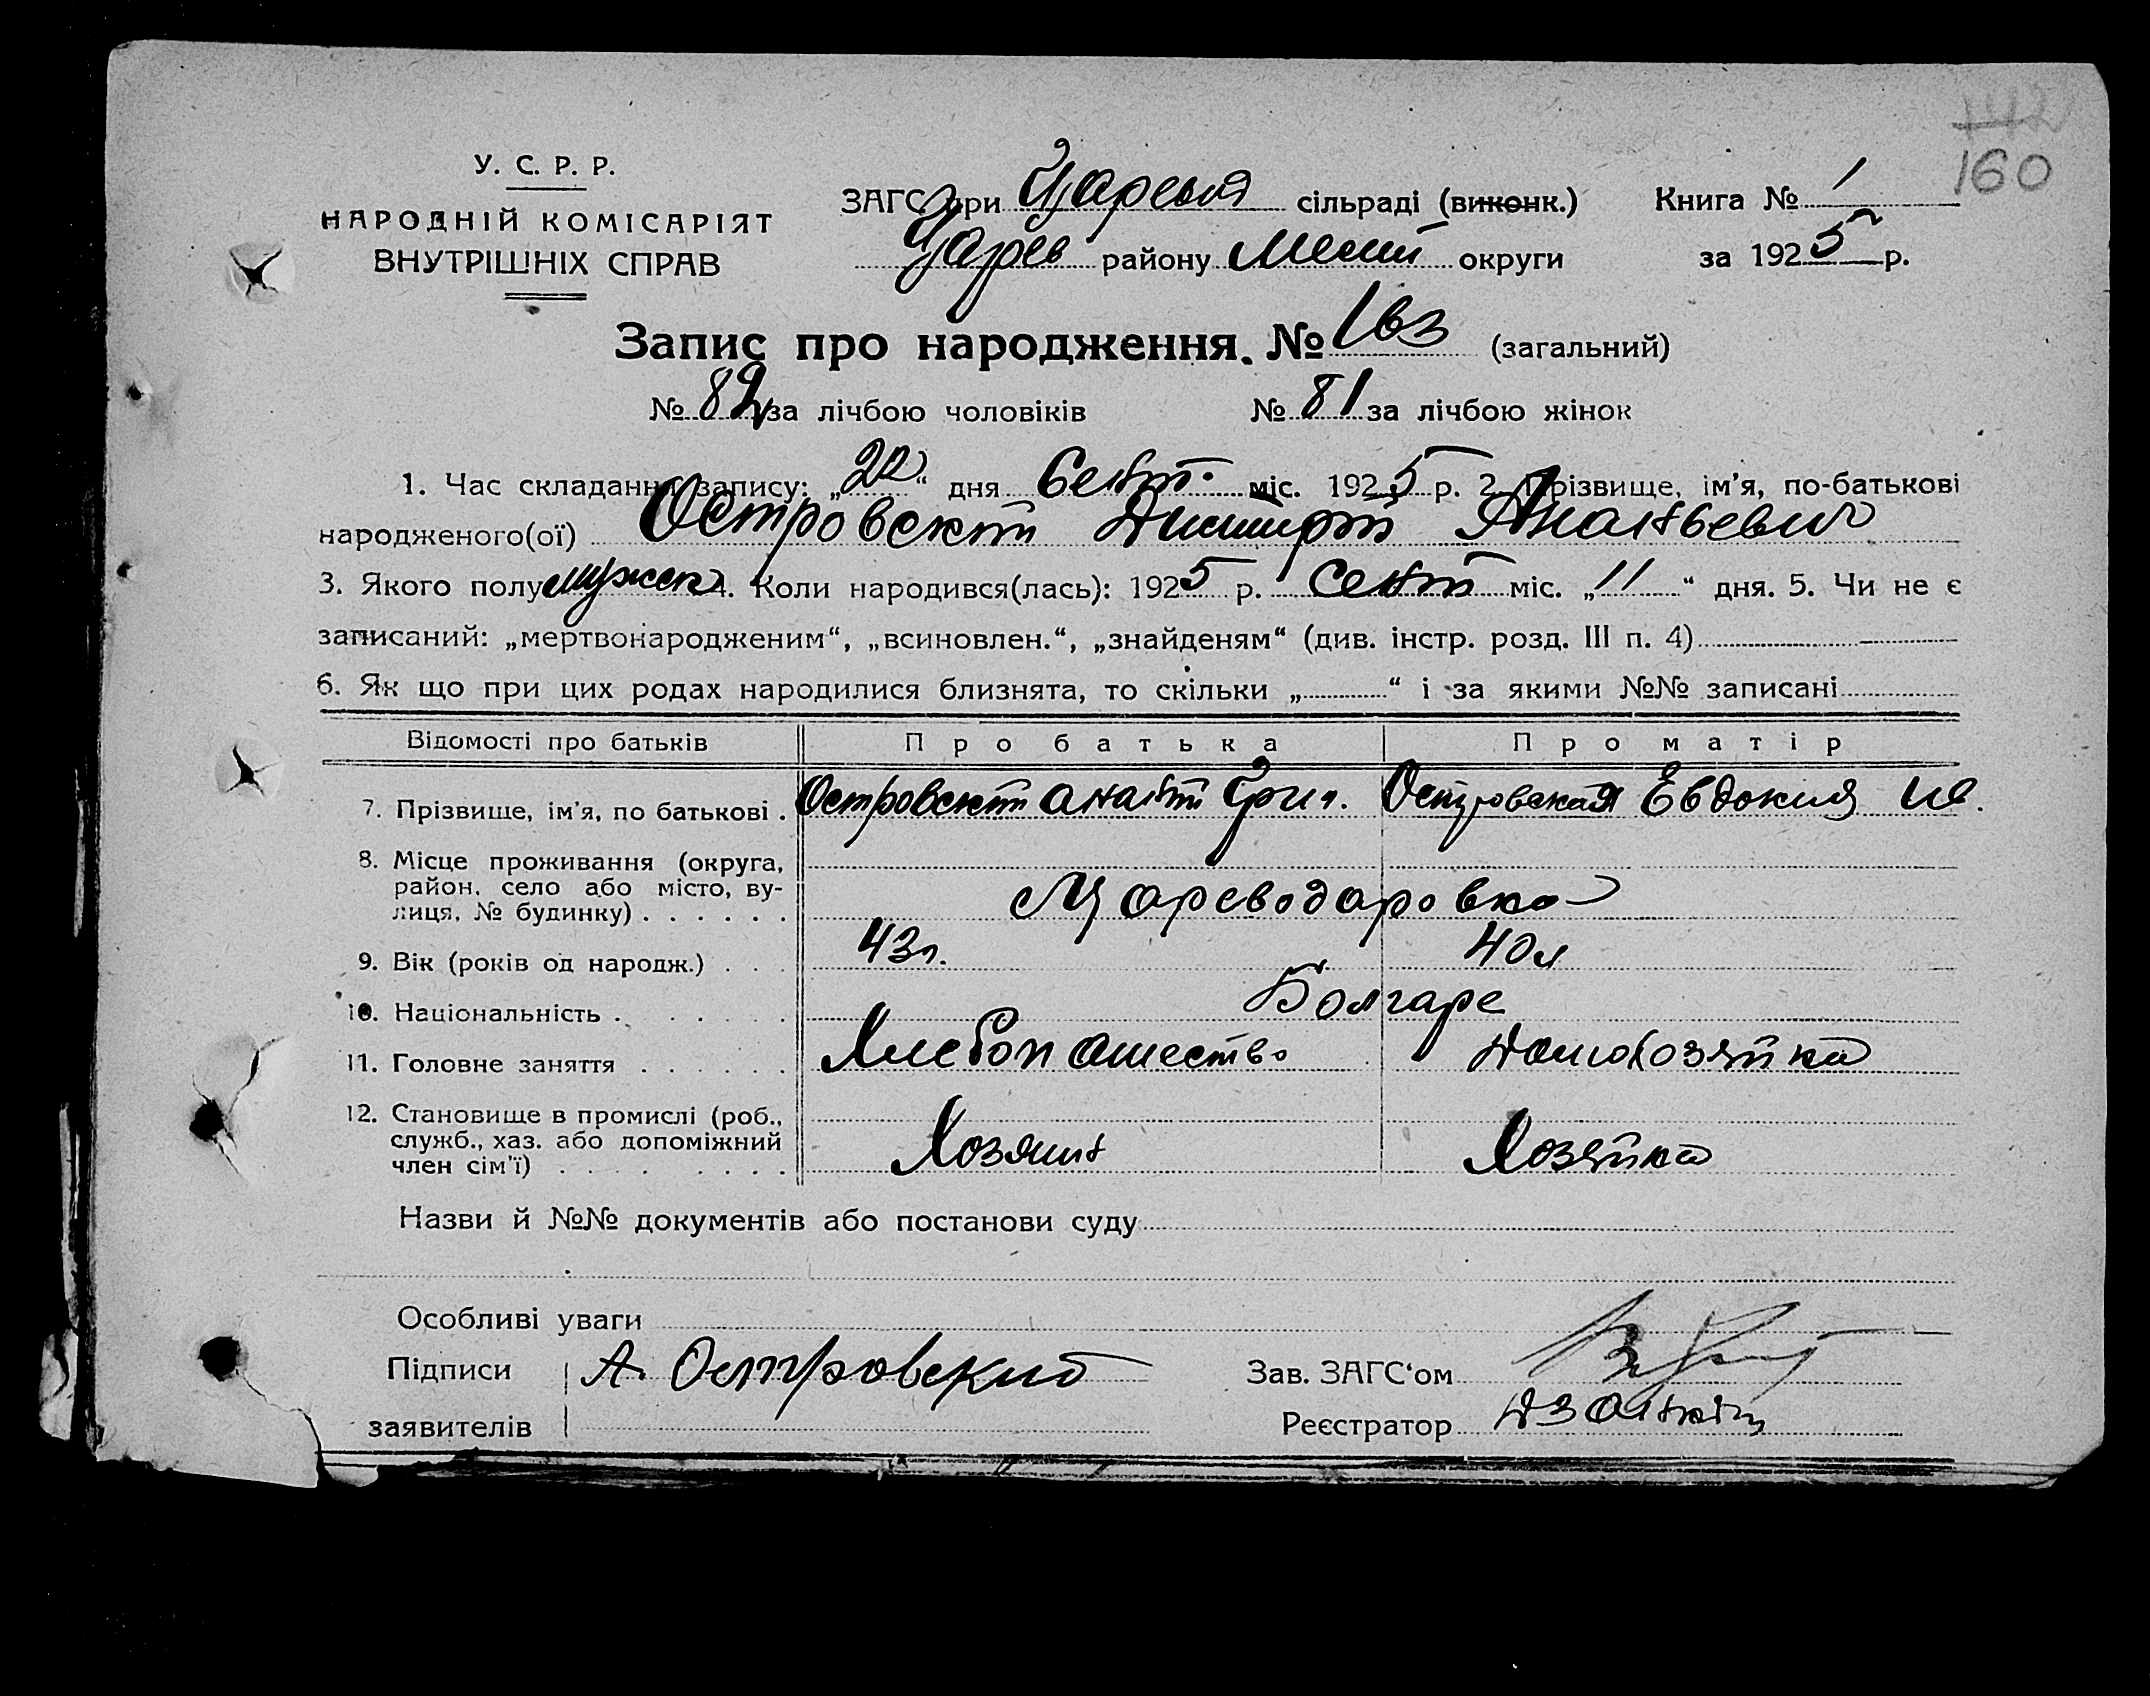 142
160
У. С. Р. Р.
НАРОДНІЙ КОМІСАРІЯТ
ВНУТРІШНІХ СПРАВ
ЗАГС при сільраді (виконк.) Книга № 1
Царев району Мелит округи за 1925 р.
Запис про народження. № 163 (загальний)
№ 82 за лічбою чоловіків № 81 за лічбою жінок
1. Час складання запису: „22“ дня Сент. міс. 1925 р. 2. Прізвище, ім’я, по-батькові
народженого(ої) Островский Димитрий Ананьевич
3. Якого полу мужск 4. Коли народився(лась): 1925 р. Сент міс. „11“ дня. 5. Чи не є
записаний: „мертвонародженим“, „всиновлен.“, „знайденям“ (див. інстр. розд. III п. 4)
6. Як що при цих родах народилися близнята, то скільки „ “ і за якими №№ записані
Відомості про батьків Про батька Про матір
7. Прізвище, ім’я, по батькові . Островский Ананий Григ. Островская Евдокия Ив.
8. Місце проживання (округа,
район, село або місто, ву-
лиця, № будинку) . . . . . . Цареводаровка
9. Вік (років од народж.) . . . 43 л. 40 л
10. Національність . . . . . . Болгаре
11. Головне заняття . . . . . . Хлебопашество Домохозяйка
12. Становище в промислі (роб.,
служб., хаз. або допоміжний
член сім’ї) . . . . . . . . Хозяин Хозяйка
Назви й №№ документів або постанови суду
Особливі уваги
Підписи А. Островский Зав. ЗАГС‘ом
заявителів Реєстратор